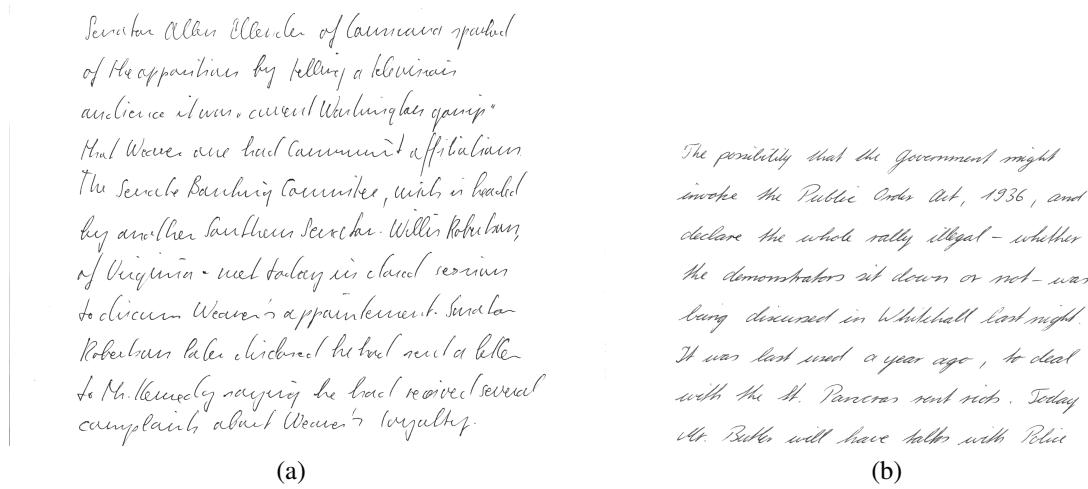 Senator Allen Ellender of Louisiana sparked
of the opposition by telling a television
audience it was "current Washington gossip"
that Weaver one had Communist affiliations.
The Senate Banking Committee, wich is headed
by another Southern Senator - Willis Robertson,
of Virginia - met today in closed session
to discuss Weaver's appointement. Senator
Robertson later disclosed he had send a letter
to Mr. Kennedy saying he had received several
complaints about Weaver's loyalty.
(a)
The possibility that the Government might
invoke the Public Order Act, 1936, and
declare the whole rally illegal - whether
the demonstrators sit down or not - was
being discussed in Whitehall last night.
It was last used a year ago, to deal
with the St. Pancras rent riots. Today
Mr. Butler will have talks with Police
(b)